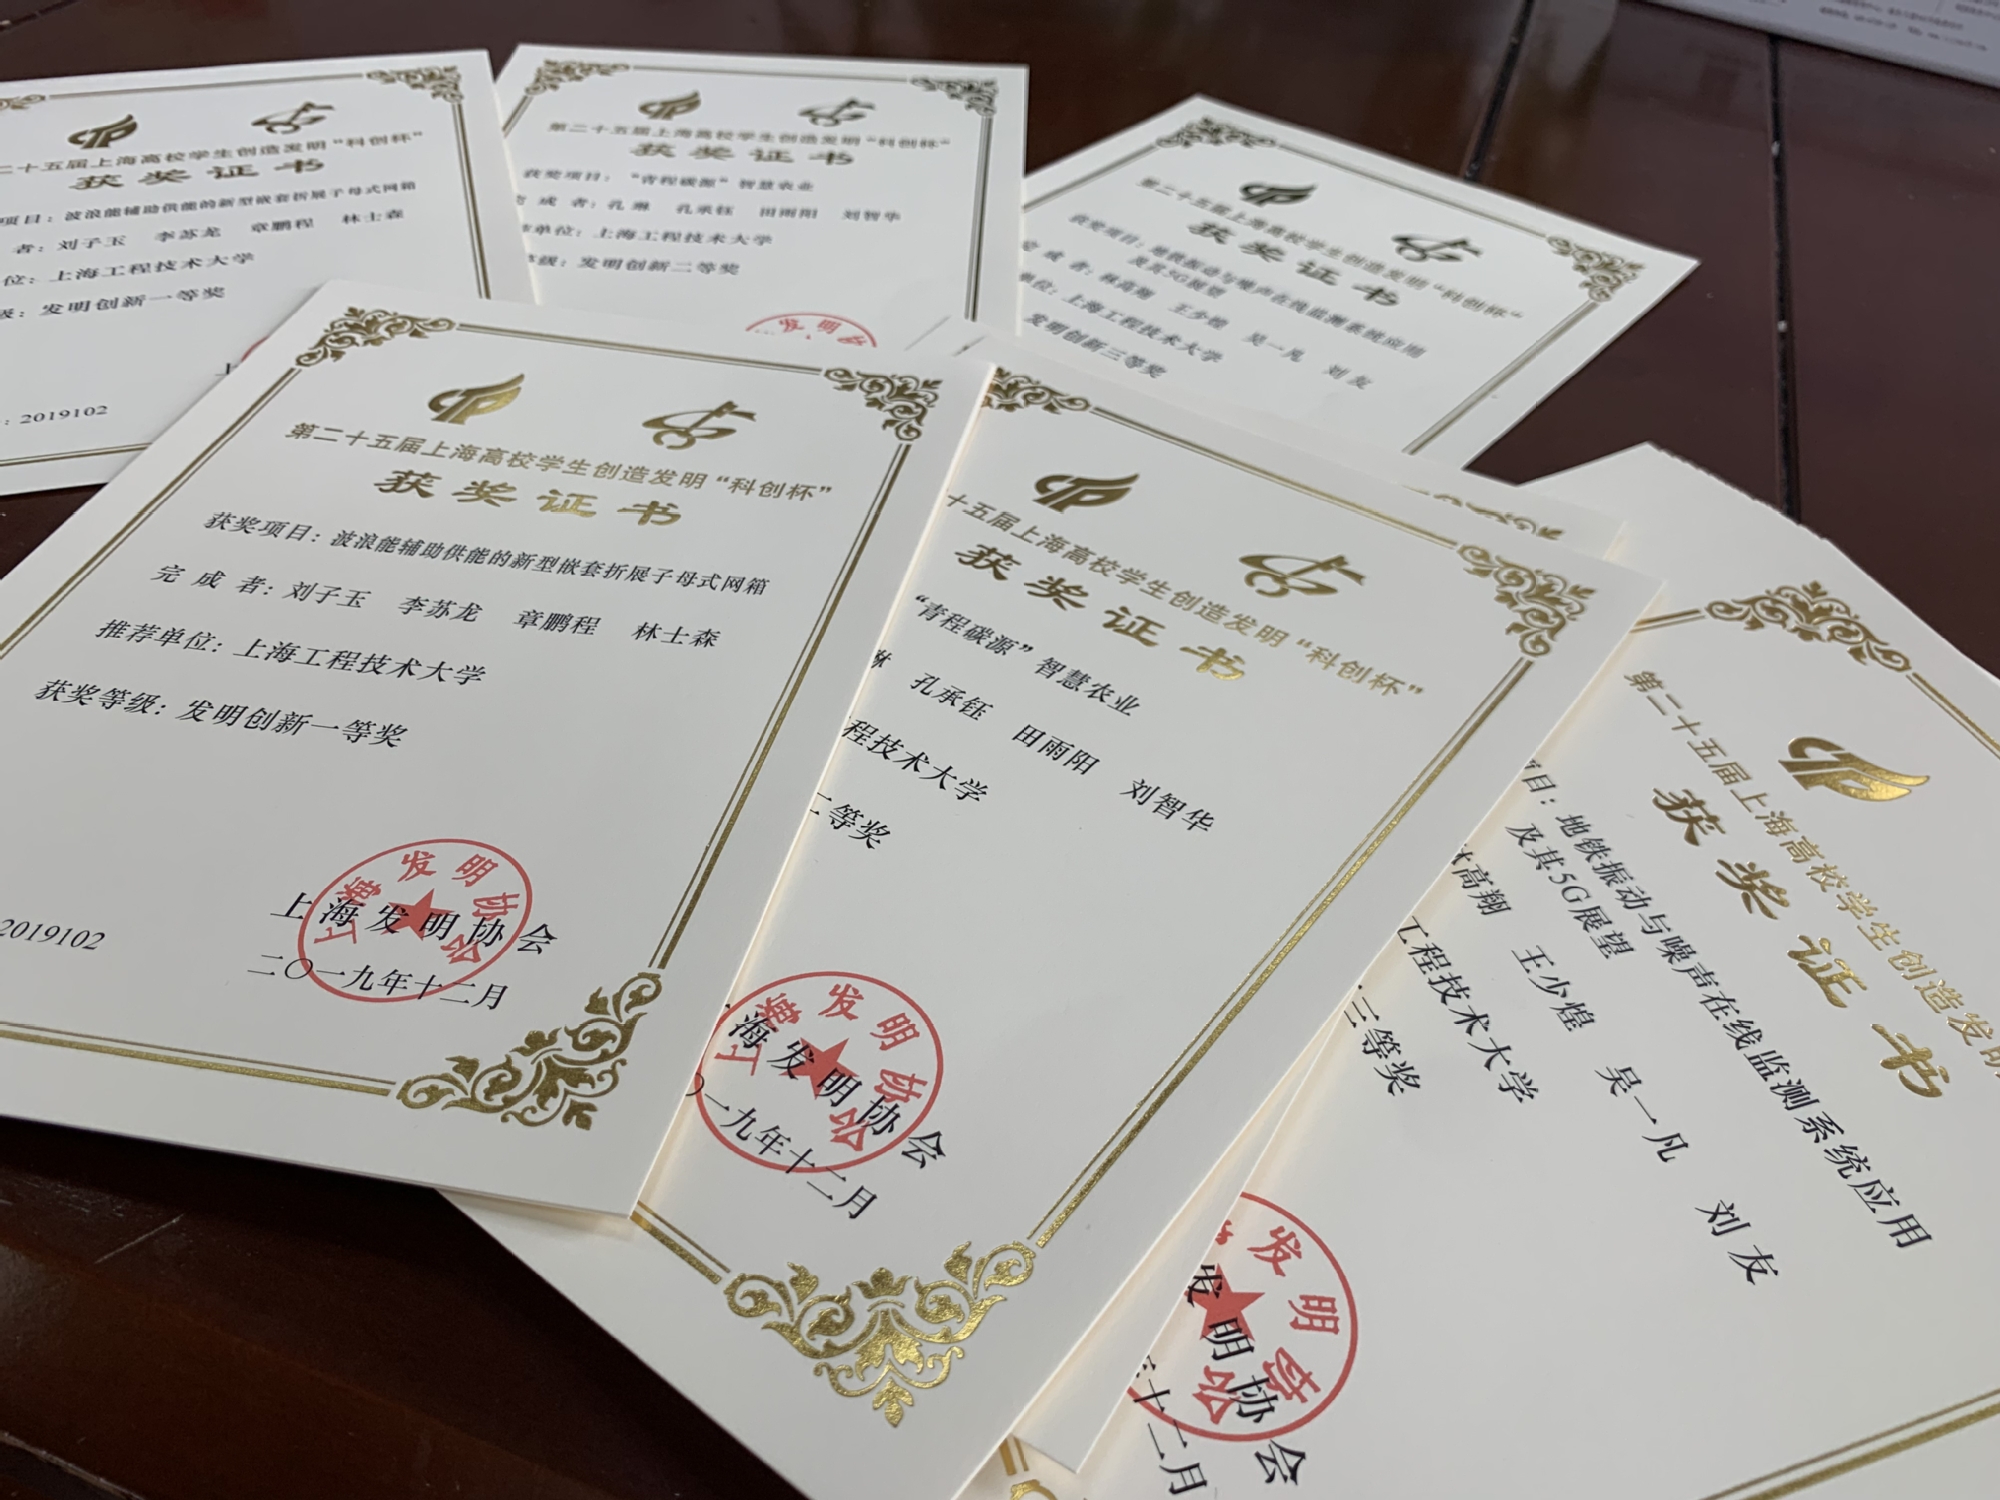 二十五届上海高校学生创造发明“科创杯”
获奖证书
项目：波浪能辅助供能的新型嵌套折展子母式网箱
者：刘子玉 李苏龙 章鹏程 林士森
位：上海工程技术大学
级：发明创新一等奖
：2019102
第二十五届上海高校学生创造发明“科创杯”
获奖证书
获奖项目：“青程碳源”智慧农业
完成者：孔琳 孔承钰 田雨阳 刘智华
单位：上海工程技术大学
级：发明创新二等奖
发明协
第二十五届上海高校学生创造发明“科创杯”
获奖证书
获奖项目：地铁振动与噪声在线监测系统应用
及其5G展望
完成者：林高翔 王少煌 吴一凡 刘友
单位：上海工程技术大学
发明创新三等奖
第二十五届上海高校学生创造发明“科创杯”
获奖证书
获奖项目：波浪能辅助供能的新型嵌套折展子母式网箱
完成者：刘子玉 李苏龙 章鹏程 林士森
推荐单位：上海工程技术大学
获奖等级：发明创新一等奖
上海发明协会
上海发明协会
二〇一九年十二月
2019102
十五届上海高校学生创造发明“科创杯”
获奖证书
“青程碳源”智慧农业
琳 孔承钰 田雨阳 刘智华
程技术大学
二等奖
上海发明协会
海发明协会
〇一九年十二月
第二十五届上海高校学生创造发明
获奖证书
项目：地铁振动与噪声在线监测系统应用
及其5G展望
林高翔 王少煌 吴一凡 刘友
工程技术大学
三等奖
发明协会
发明协会
年十二月